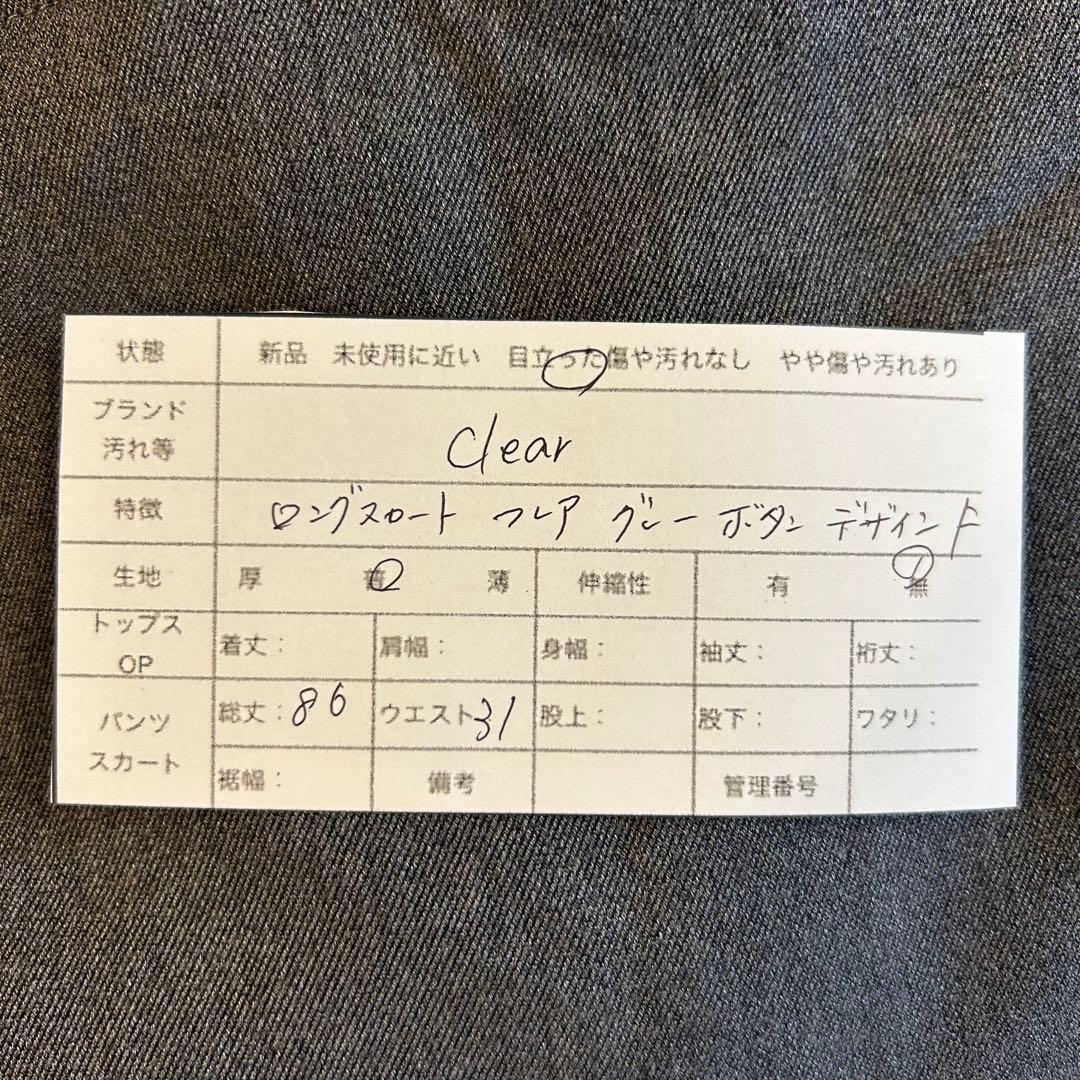 状態 新品 未使用に近い 目立った傷や汚れなし やや傷や汚れあり
ブランド
汚れ等
clear
特徴 ロングスカート フレア グレー ボタン デザイン ド
生地 厚 普 薄 伸縮性 有 無
トップス
OP
着丈： 肩幅： 身幅： 袖丈： 裄丈：
パンツ
スカート
総丈：86 ウエスト31 股上： 股下： ワタリ：
裾幅： 備考 管理番号